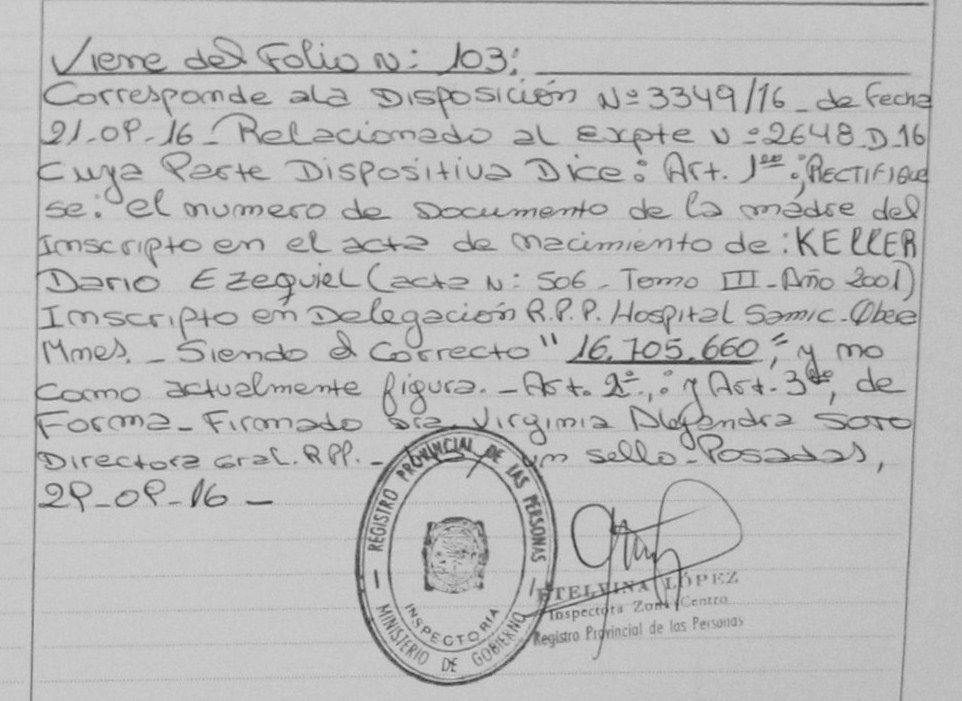 Viene del Folio N: 103:
Corresponde ala Disposición Nº 3349/16 - de fecha
21-09-16 - Relacionado al Expte Nº 2648-D-16
Cuya Parte Dispositiva Dice: Art. 1ro: RECTIFIQUE
se: el numero de Documento de la madre del
Inscripto en el acta de nacimiento de: KELLER
Dario Ezequiel (acta N: 506 - Tomo III - Año 2001)
Inscripto en Delegación R.P.P. Hospital Samic-Obera
Mnes. - Siendo el Correcto "16.705.660", y no
Como actualmente figura. - Art. 2º, : y Art. 3ro, de
Forma - Firmado Dra. Virginia Alejandra Soto
Directora Gral. RPP. - Hay un sello - Posadas,
29-09-16 -
REGISTRO PROVINCIAL DE LAS PERSONAS
INSPECTORIA
MINISTERIO DE GOBIERNO
ETELVINA LÓPEZ
Inspectora Zona Centro
Registro Provincial de las Personas